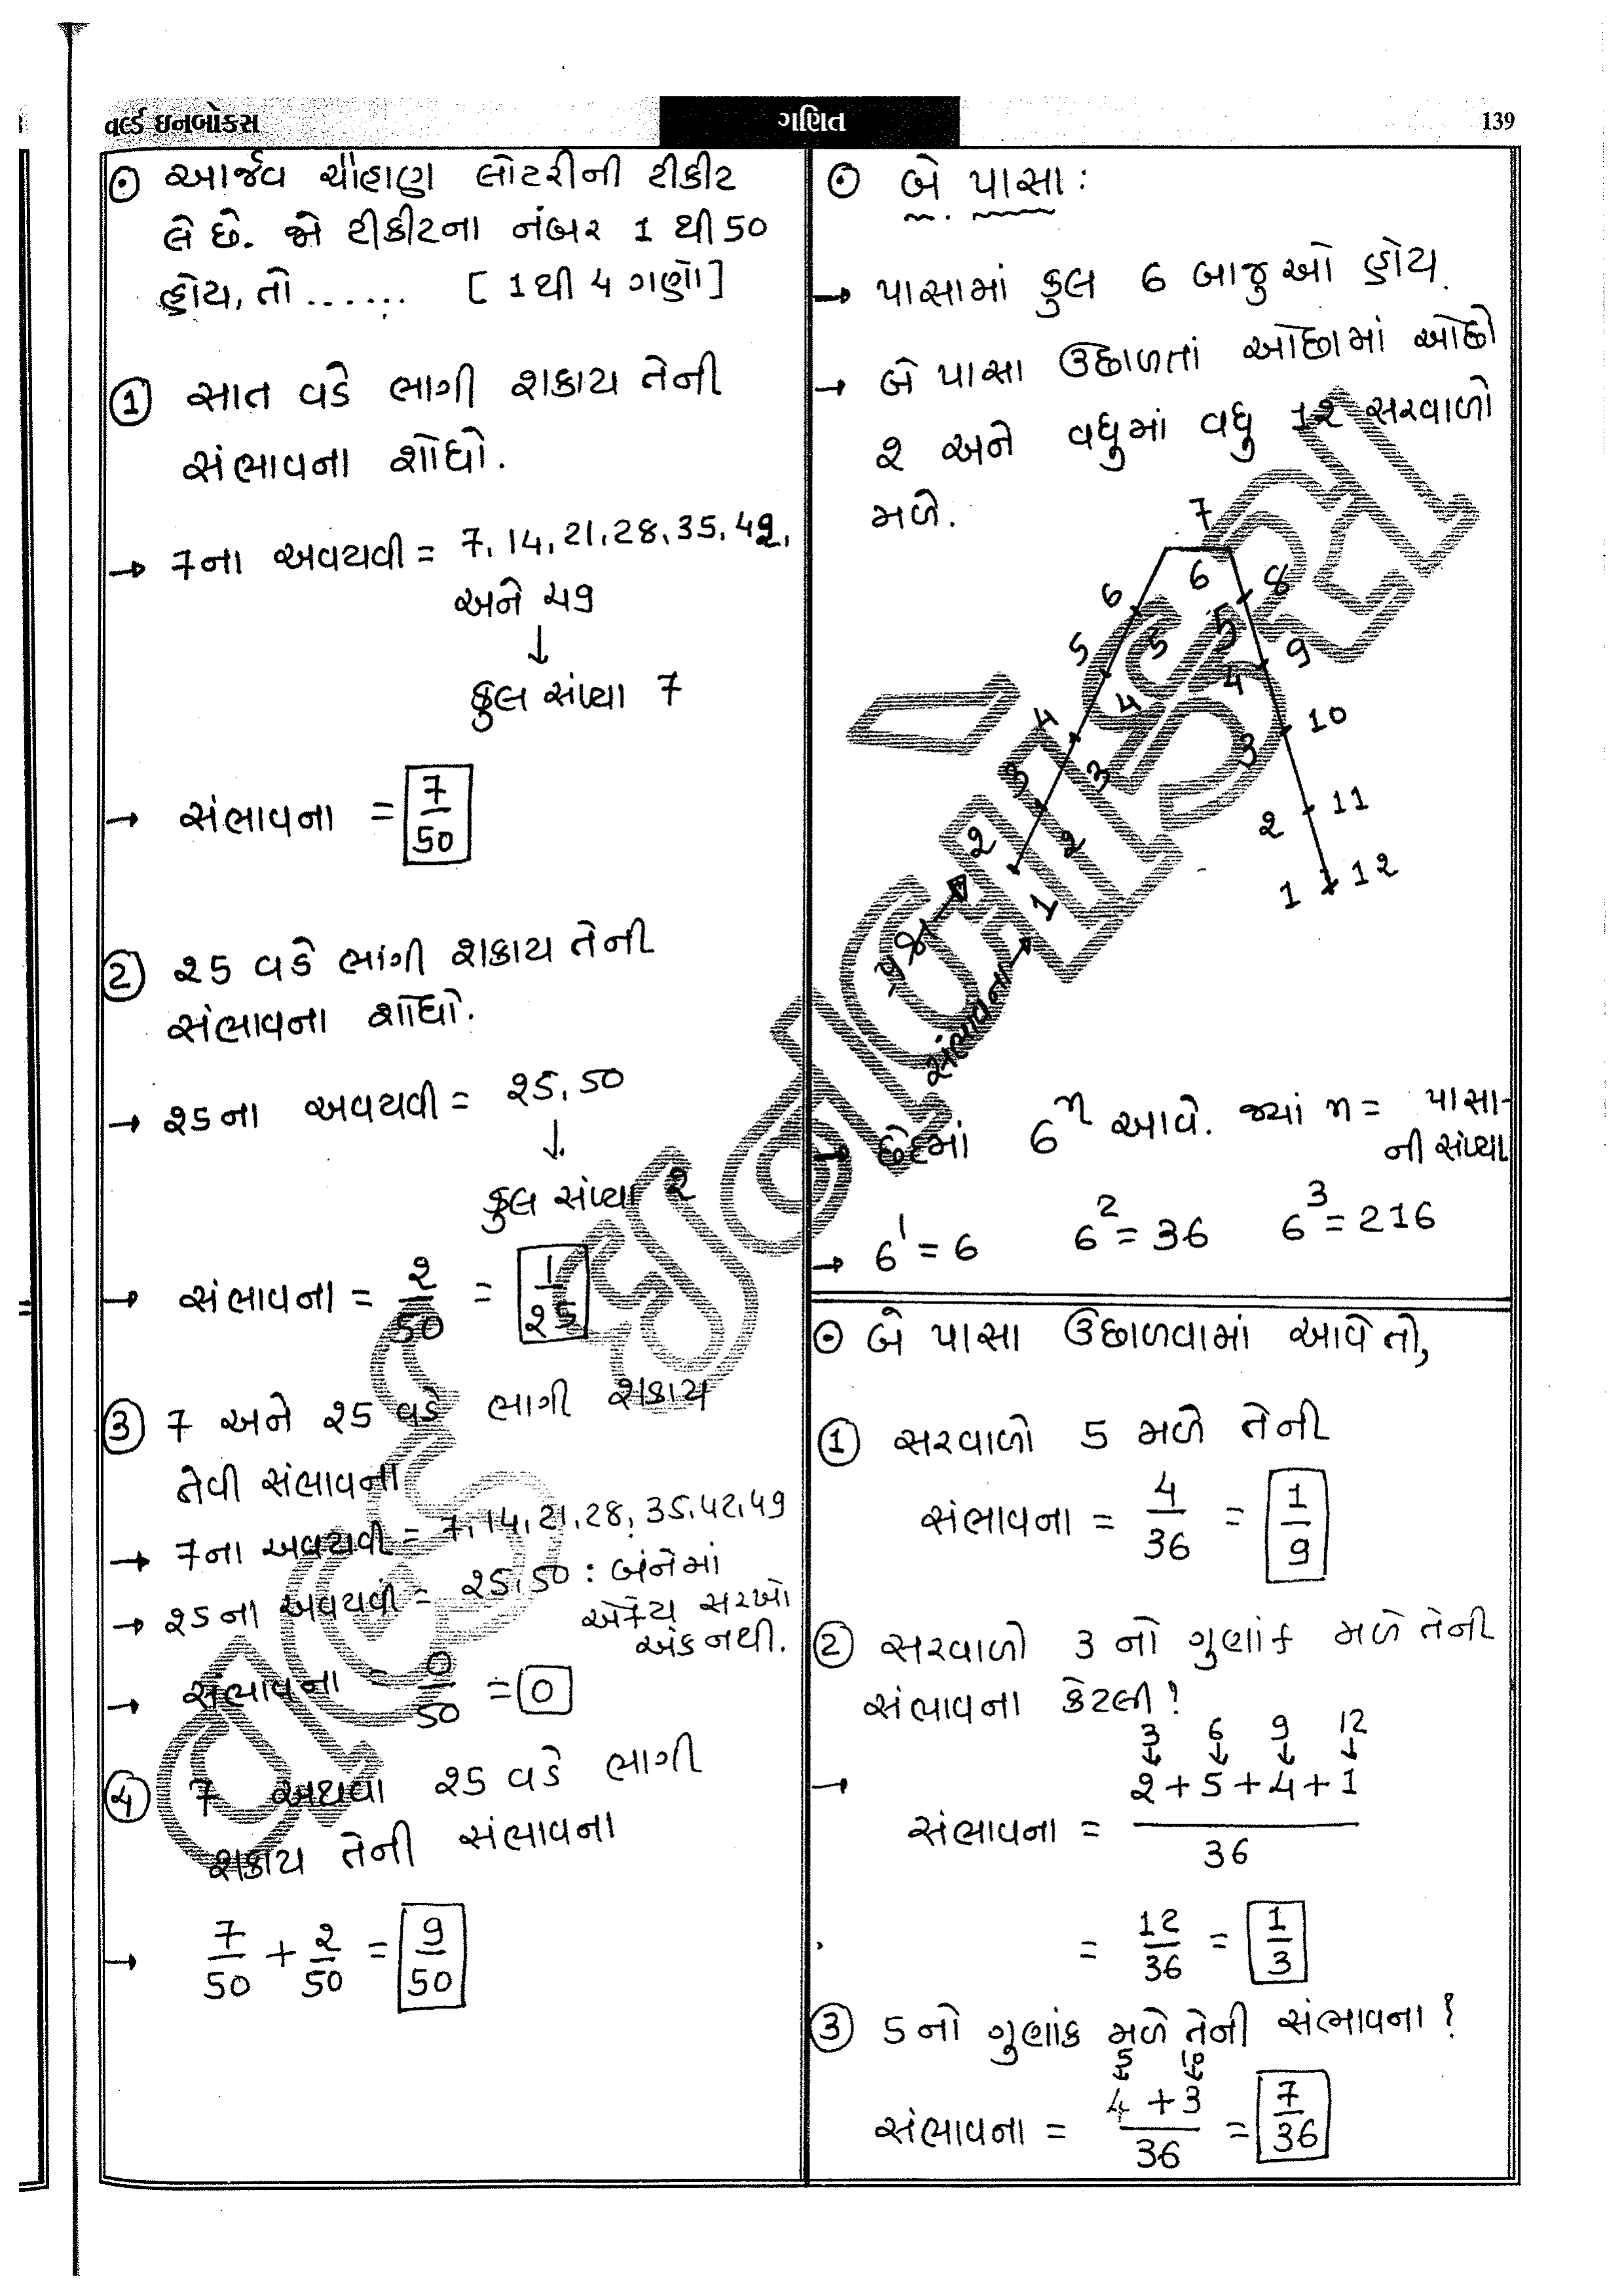 વર્લ્ડ ઇનબોક્સ
ગણિત
139
⊙ આર્જવ ચૌહાણ લોટરીની ટીકીટ
લે છે. જો ટીકીટના નંબર 1 થી 50
હોય, તો ...... [1 થી 4 ગણો]
① સાત વડે ભાગી શકાય તેની
સંભાવના શોધો.
→ 7ના અવયવી = 7, 14, 21, 28, 35, 42,
અને 49
↓
કુલ સંખ્યા 7
→ સંભાવના = 7/50
② 25 વડે ભાગી શકાય તેની
સંભાવના શોધો.
→ 25ના અવયવી = 25, 50
↓
કુલ સંખ્યા 2
→ સંભાવના = 2/50 = 1/25
③ 7 અને 25 વડે ભાગી શકાય
તેવી સંભાવના
→ 7ના અવયવી = 7, 14, 21, 28, 35, 42, 49
→ 25ના અવયવી = 25, 50 : બંનેમાં
એકેય સરખો
અંક નથી.
→ સંભાવના = 0/50 = 0
④ 7 અથવા 25 વડે ભાગી
શકાય તેની સંભાવના
→ 7/50 + 2/50 = 9/50
⊙ બે પાસા :
→ પાસામાં કુલ 6 બાજુઓ હોય.
→ બે પાસા ઉછાળતાં ઓછામાં ઓછો
2 અને વધુમાં વધુ 12 સરવાળો
મળે.
7
6 6 8
5 5 5 9
4 4 4 10
3 3 3 11
2 2 2 12
1 1
સંભાવના →
→ છેદમાં 6ⁿ આવે. જ્યાં n = પાસા-
ની સંખ્યા
→ 6¹ = 6 6² = 36 6³ = 216
⊙ બે પાસા ઉછાળવામાં આવે તો,
① સરવાળો 5 મળે તેની
સંભાવના = 4/36 = 1/9
② સરવાળો 3 નો ગુણાંક મળે તેની
સંભાવના કેટલી?
3 6 9 12
↓ ↓ ↓ ↓
→ સંભાવના = 2 + 5 + 4 + 1 / 36
= 12/36 = 1/3
③ 5નો ગુણાંક મળે તેની સંભાવના?
5 10
↓ ↓
સંભાવના = 4 + 3 / 36 = 7/36
વર્લ્ડ ઇનબોક્સ